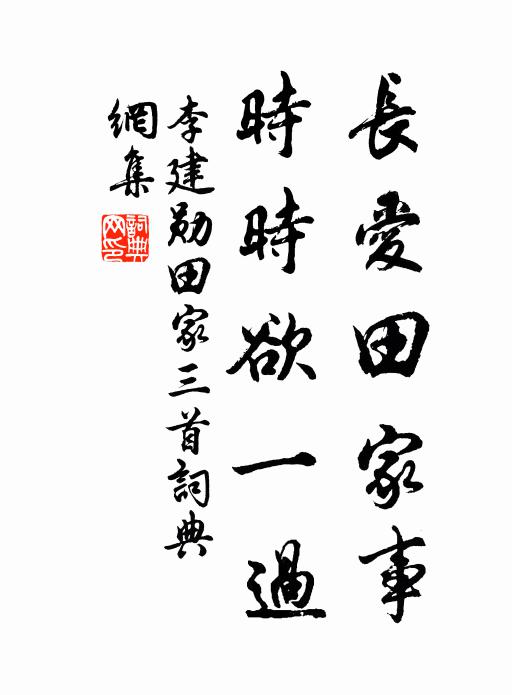 長愛田家事
時時欲一過
李建勛田家三首詞典
網集
詞典
网印